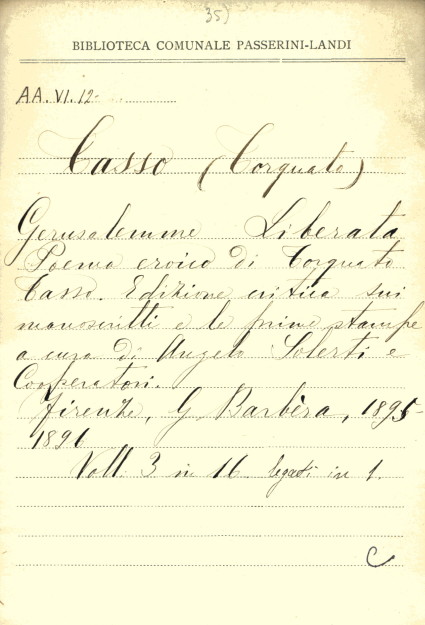 35)
BIBLIOTECA COMUNALE PASSERINI-LANDI
AA. VI. 12-
Tasso (Torquato)
Gerusalemme Liberata
Poema eroico di Torquato
Tasso. Edizione critica sui
manoscritti e le prime stampe
a cura di Angelo Solerti e
Cooperatori.
Firenze, G. Barbèra, 1895-
1896
Voll. 3 in 16 legati in 1.
C